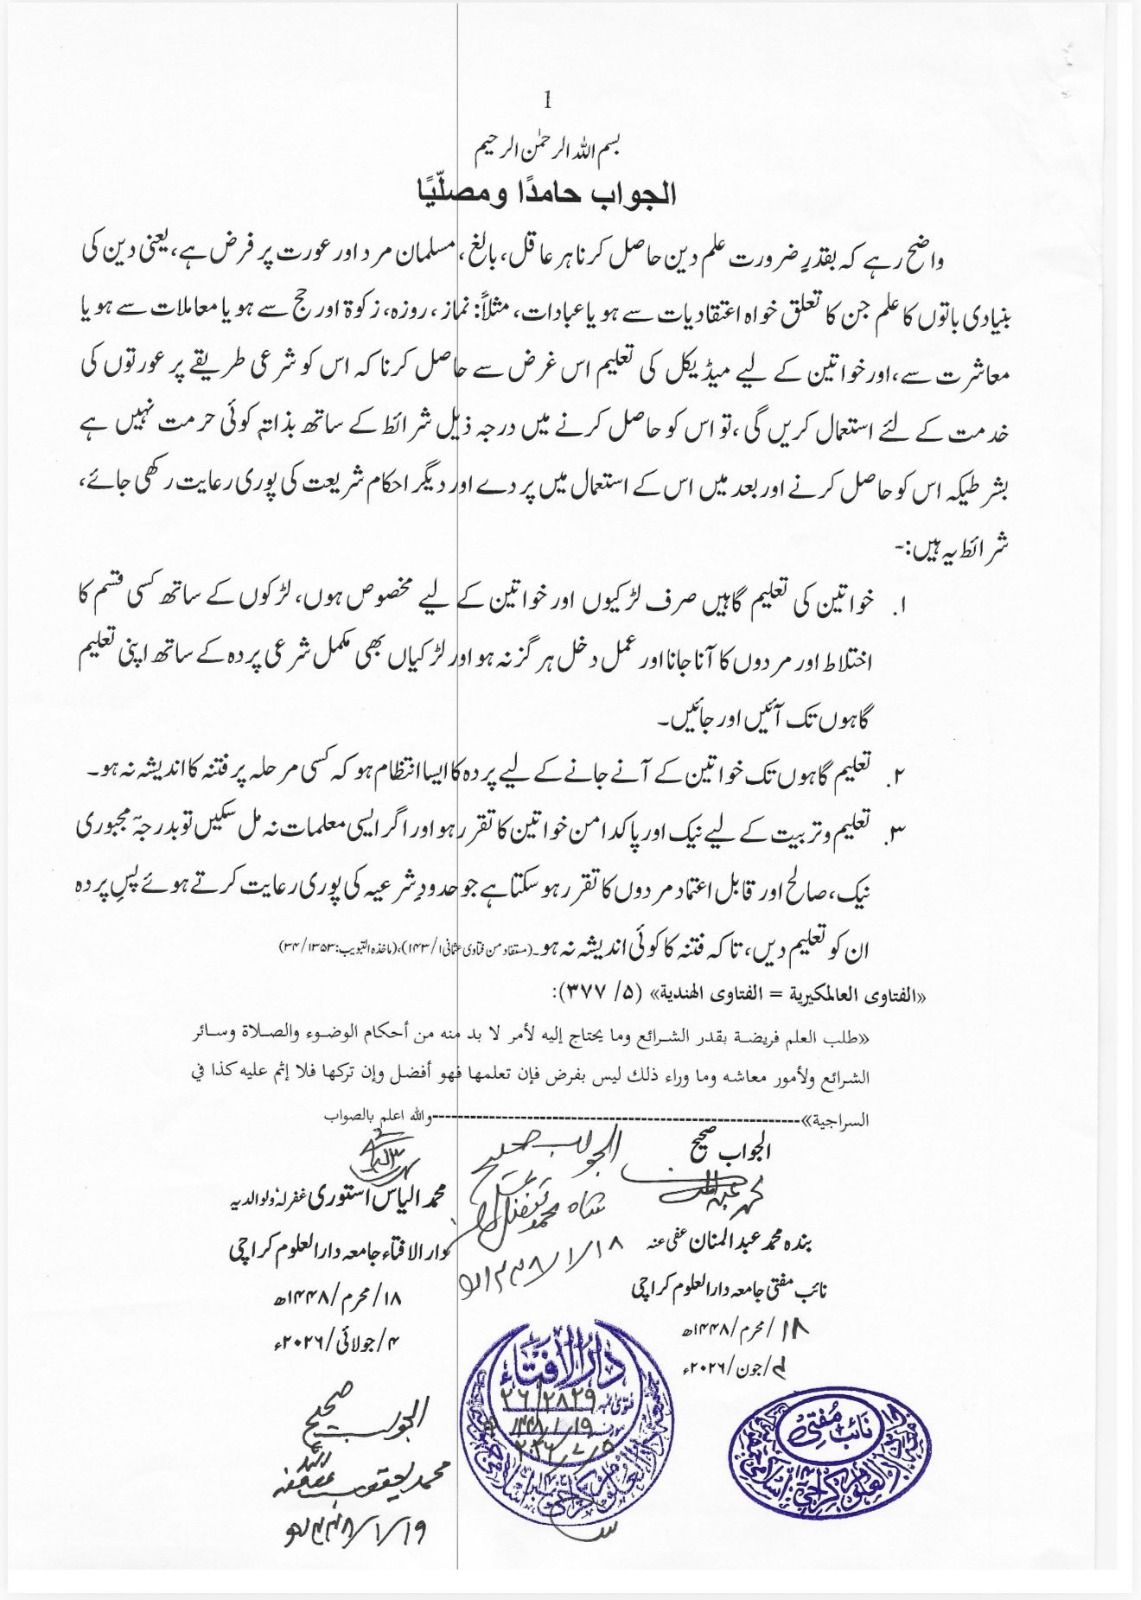 1
بسم اللہ الرحمٰن الرحیم
الجواب حامدًا ومصلّیًا
واضح رہے کہ بقدرِ ضرورت علم دین حاصل کرنا ہر عاقل، بالغ، مسلمان مرد اور عورت پر فرض ہے، یعنی دین کی
بنیادی باتوں کا علم جن کا تعلق خواہ اعتقادیات سے ہو یا عبادات، مثلاً: نماز، روزہ، زکوۃ اور حج سے ہو یا معاملات سے ہو یا
معاشرت سے، اور خواتین کے لیے میڈیکل کی تعلیم اس غرض سے حاصل کرنا کہ اس کو شرعی طریقے پر عورتوں کی
خدمت کے لئے استعمال کریں گی، تو اس کو حاصل کرنے میں درجہ ذیل شرائط کے ساتھ بذاتہٖ کوئی حرمت نہیں ہے
بشرطیکہ اس کو حاصل کرنے اور بعد میں اس کے استعمال میں پردے اور دیگر احکام شریعت کی پوری رعایت رکھی جائے،
شرائط یہ ہیں:-
۱. خواتین کی تعلیم گاہیں صرف لڑکیوں اور خواتین کے لیے مخصوص ہوں، لڑکوں کے ساتھ کسی قسم کا
اختلاط اور مردوں کا آنا جانا اور عمل دخل ہرگز نہ ہو اور لڑکیاں بھی مکمل شرعی پردہ کے ساتھ اپنی تعلیم
گاہوں تک آئیں اور جائیں۔
۲. تعلیم گاہوں تک خواتین کے آنے جانے کے لیے پردہ کا ایسا انتظام ہو کہ کسی مرحلہ پر فتنہ کا اندیشہ نہ ہو۔
۳. تعلیم وتربیت کے لیے نیک اور پاکدامن خواتین کا تقرر ہو اور اگر ایسی معلمات نہ مل سکیں تو بدرجہٗ مجبوری
نیک، صالح اور قابل اعتماد مردوں کا تقرر ہو سکتا ہے جو حدودِ شرعیہ کی پوری رعایت کرتے ہوئے پسِ پردہ
ان کو تعلیم دیں، تاکہ فتنہ کا کوئی اندیشہ نہ ہو۔ (مستفاد من فتاوی عثمانی ۱/۱۴۳)، (ماخذہ التبویب: ۱۳۵۳/۳۴)
«الفتاوى العالمكيرية = الفتاوى الهندية» (۵/ ۳۷۷):
«طلب العلم فريضة بقدر الشرائع وما يحتاج إليه لأمر لا بد منه من أحكام الوضوء والصلاة وسائر
الشرائع ولأمور معاشه وما وراء ذلك ليس بفرض فإن تعلمها فهو أفضل وإن تركها فلا إثم عليه كذا في
السراجية»----------------------------------------------------------واللہ اعلم بالصواب
الجواب صحیح
بندہ محمد عبد المنان عفی عنہ
نائب مفتی جامعہ دارالعلوم کراچی
۱۸/محرم/۱۴۴۸ھ
/جون/۲۰۲۶ء
الجواب صحیح
شاہ محمد تفضل علی
۱۴۴۸/۱/۱۸ھ
محمد الیاس استوری غفر لہٗ ولوالدیہ
دار الافتاء جامعہ دارالعلوم کراچی
۱۸/محرم/۱۴۴۸ھ
۴/جولائی/۲۰۲۶ء
الجواب صحیح
محمد یعقوب عفا اللہ عنہ
۱۴۴۸/۱/۱۹ھ
دارالافتاء
فتویٰ نمبر ۲۶/۲۸۲۹
مورخہ ۱۴۴۸/۱/۱۹
جامعہ دارالعلوم کراچی
نائب مفتی
جامعہ دارالعلوم کراچی